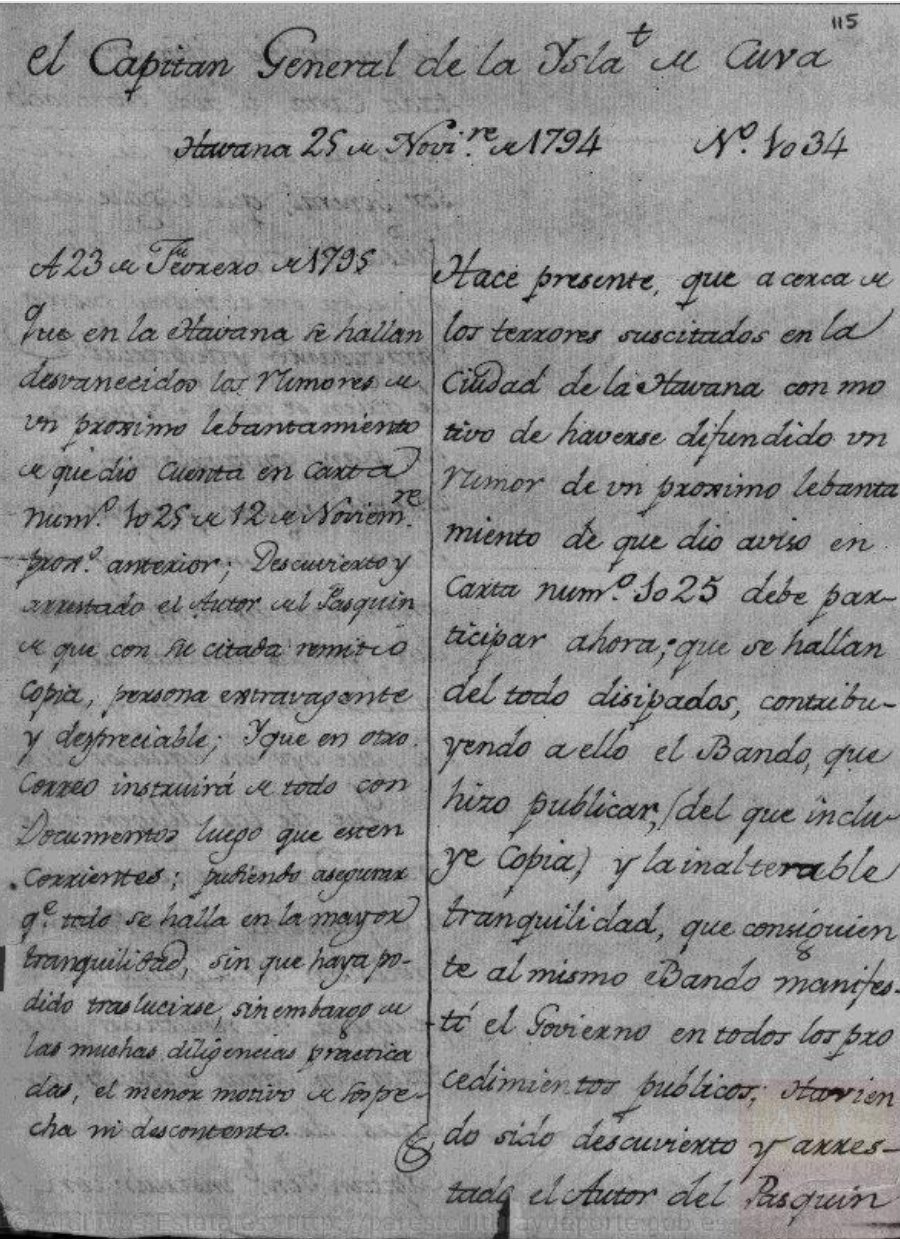 115
el Capitan General de la Ysla de Cuva
Havana 25 de Novi.re de 1794 N.º 1o34
A 23 de Feorero de 1795
Que en la Havana se hallan
desvanecidos las Rumores de
vn proximo lebantamiento
de que dio cuenta en Carta
num.º 1o25 de 12 de Noviem.re
prox.º anterior; Descuvierto y
arrestado el Autor del Pasquin
de que con su citada remitió
Copia, persona extravagante
y despreciable; Y que en otro
Correo instruirá de todo con
Documentos luego que esten
corrientes; pudiendo asegurar
q.e todo se halla en la mayor
tranquilidad, sin que haya po-
dido traslucirse, sin embargo de
las muchas diligencias practica
das, el menor motivo de sospe-
cha ni descontento.
Hace presente, que acerca de
los terrores suscitados en la
Ciudad de la Havana con mo
tivo de haverse difundido vn
Rumor de vn proximo lebanta
miento de que dio aviso en
Carta num.º 1o25 debe par-
ticipar ahora; que se hallan
del todo disipados, contribu-
yendo a ello el Bando, que
hizo publicar, (del que inclu-
ye Copia) y la inalterable
tranquilidad, que consiguien
te al mismo Bando manifes-
tó el Govierno en todos los pro
cedimientos publicos; Havien
do sido descuvierto y arres-
tado el Autor del Pasquin